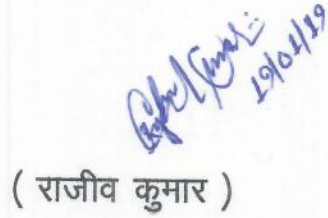 19/01/19
( राजीव कुमार )